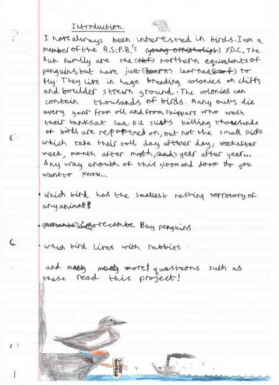 Introduction
I have always been interested in birds. I am a
member of the R.S.P.B.'s (young ornithologist) YOC. The
Auk family are the northern equivalents of
penguins but have just learnt to
fly. They live in huge breeding colonies on cliffs
and boulder strewn ground. The colonies can
contain thousands of birds. Many auks die
every year from oil and from skippers who wash
their tanks at sea. Oil slicks killing thousands
of birds are reported on, but not the small slicks
which take their toll day after day, week after
week, month after month, year after year...
Any way enough of this gloom and doom do you
want to know...
• which bird has the smallest nesting territory of
any animal?
penguins
• which bird lives with rabbits
and many more! questions such as
these read this project!